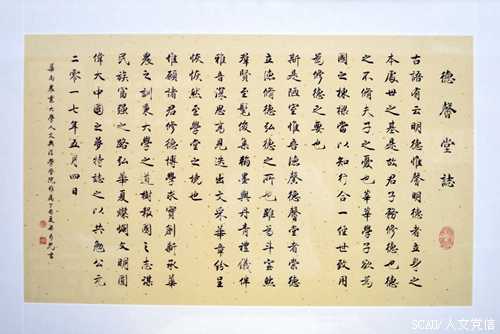 德馨堂誌
古語有云明德惟馨明德者立身之
本處世之基是故君子務修德也德
之不脩夫子之憂也莘莘學子欲為
國之棟樑當以知行合一經世致用
為修德之要也
斯是陋室惟吾德馨德馨堂者崇德
立德脩德弘德之所也雖為斗室然
群賢至髦俊集翰墨與丹青禮儀伴
雅音深思高見迭出文采華章紛呈
恢恢然至學堂之境也
惟願諸君修德博學求實創新承華
農之訓秉大學之道樹報國之志謀
民族富強之路弘華夏燦爛文明圓
偉大中國之夢特誌之以共勉公元
二零一七年五月四日
華南農業大學人文與法學學院 丁酉夏 書
SCAU/人文党信